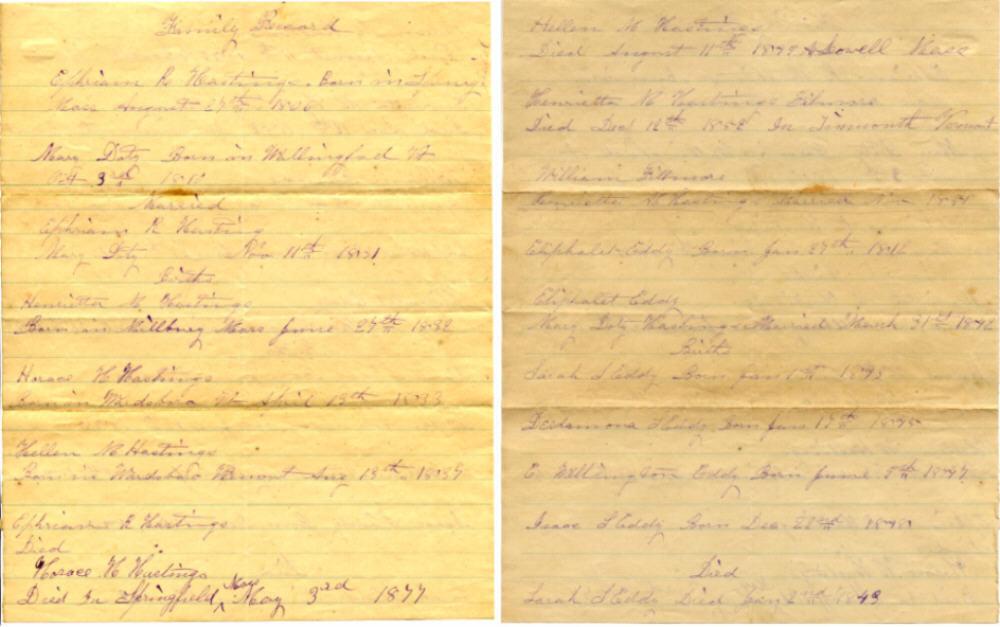 Family Record
Ephriam R Hastings. Born in
Mass August 27th
Mary Doty Born in Wallingfod Vt
Oct 3rd
Married
Ephriam R Hasting
Mary Doty Nov 11th 1831
Births
Henrietta M Hastings
Born in Millbury Mass June 27th 1832
Horace H Hastings
Born in Wardsboro Vt April 19th 1833
Hellen M Hastings
Born in Wardsboro Vermont Aug 18th 1839
Ephriam R Hastings
Died
Horace H Hastings
Died In Springfield Mass May 3rd 1877
Hellen M Hastings
Died August 11th Lowell Mass
Henrietta M Hastings Filmore
Died Dec 12th In Tinmouth Vermont
William Fillmore
Henrietta M Hastings Married Nov
Eliphalet Eddy Born Jan 27th 1816
Eliphalet Eddy
Mary Doty Hastings Married March 31st 1842
Births
Sarah S Eddy Born Jan
Desdamona S Eddy Born Jan 19th
E Wellington Eddy Born June 5th 1847
Isaac S Eddy Born Dec
Died
Sarah S Eddy Died Jan